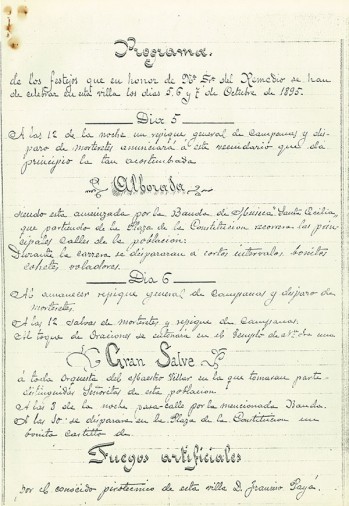 Programa.
de los festejos que en honor de Nª Srª del Remedio se han
de celebrar en esta villa los dias 5, 6 y 7 de Octubre de 1895.
Dia 5
A las 12 de la noche un repique general de Campanas y dis-
paro de morteretes anunciará á este vecindario que da
principio la tan acostumbada
Alborada
siendo esta amenizada por la Banda de Musica Santa Cecilia,
que partiendo de la Plaza de la Constitucion recorrera las prin-
cipales Calles de la poblacion:
Durante la carrera se dispararan a cortos intervalos, bonitos
cohetes voladores.
Dia 6
Al amanecer repique general de Campanas y disparo de
morteretes.
A las 12 salvas de morteretes y repique de Campanas.
Al toque de Oraciones se cantará en el Templo de una
Gran Salve
á toda Orquesta del Maestro Villar en la que tomaran parte
distinguidas Señoritas de esta poblacion.
A las 8 de la noche pasa-calle por la mencionada Banda.
A las 10 se disparará en la Plaza de la Constitucion un
bonito castillo de
Fuegos artificiales
por el conocido pirotecnico de esta villa D. Payá.